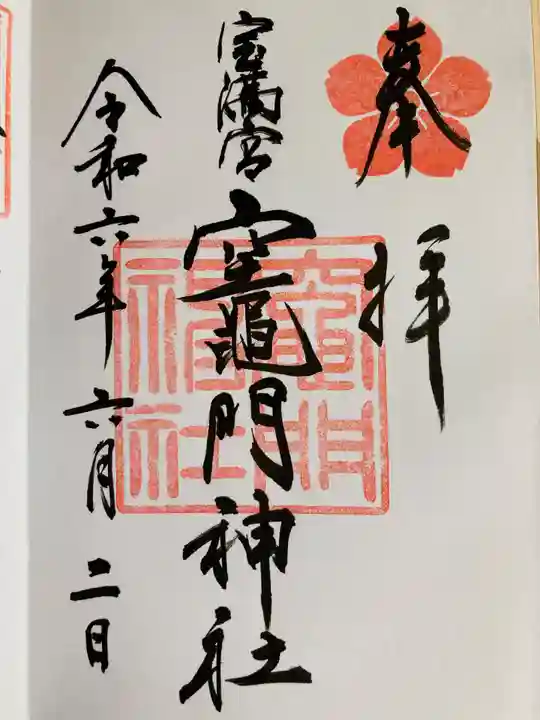 奉拝
宝満宮
竈門神社
竈門神社
令和六年六月二日